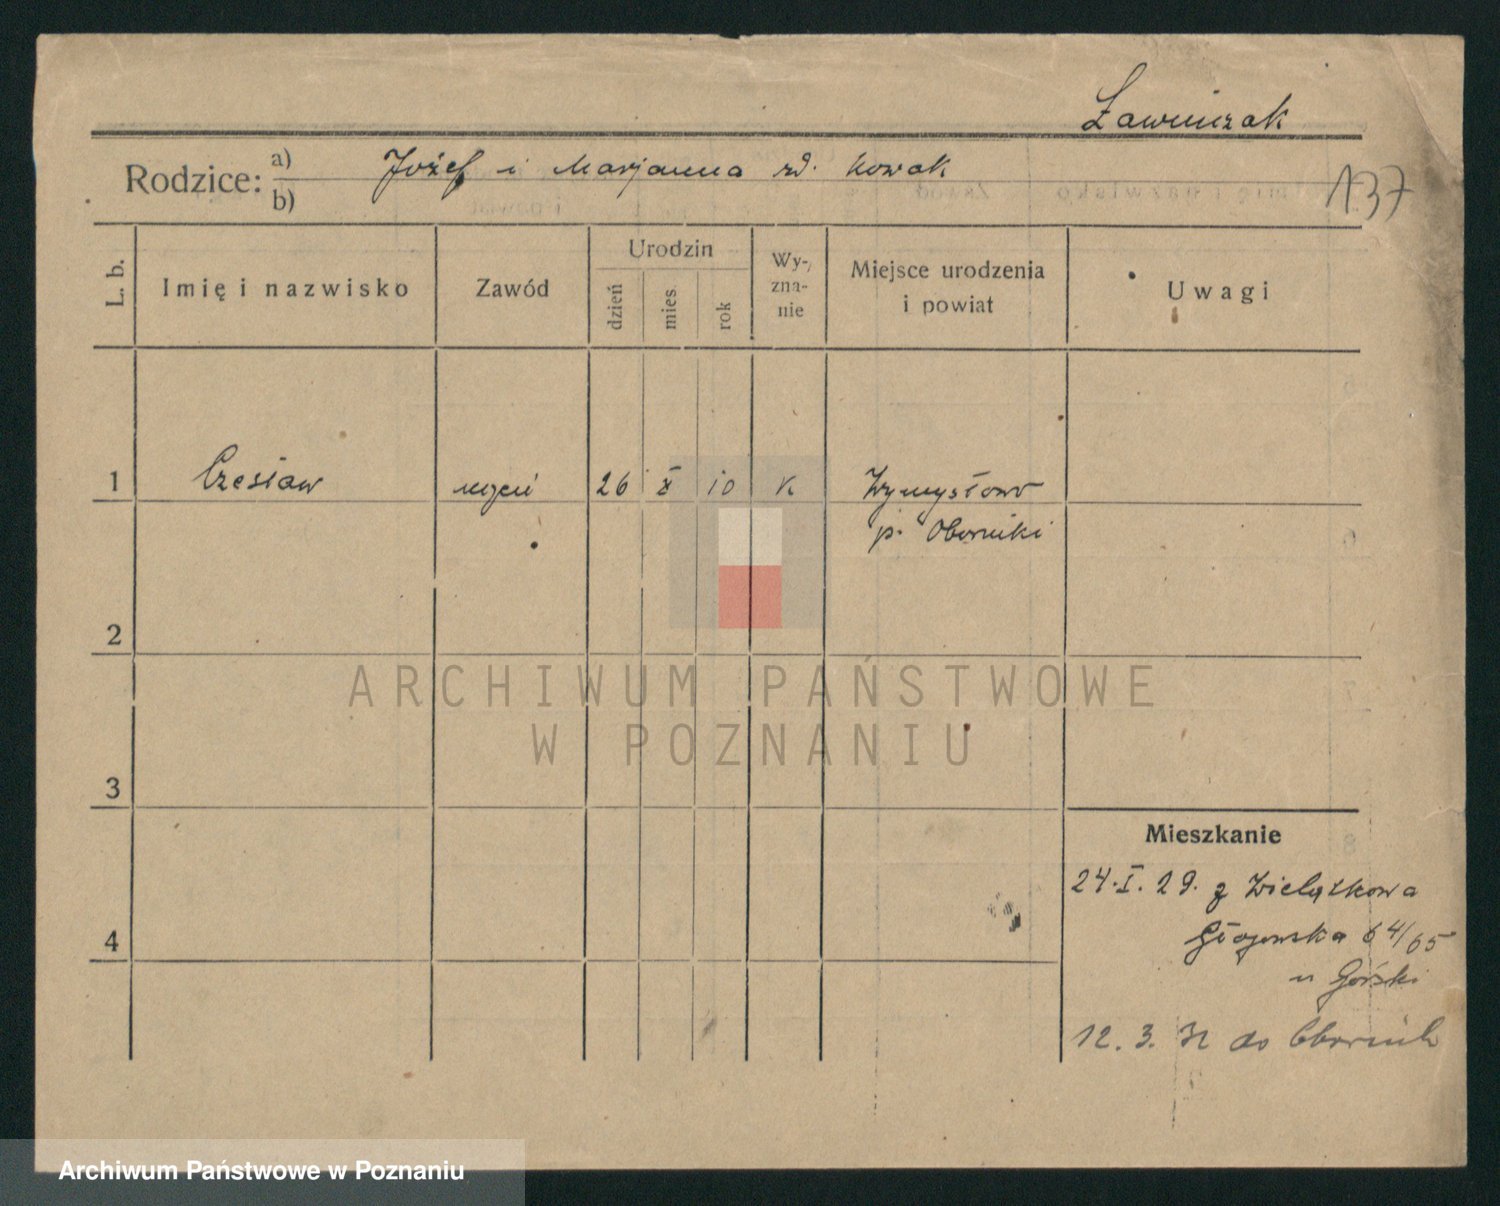 Ławniczak
137
Rodzice: a) Józef i Marjanna zd. Nowak
b)
L. b.
Imię i nazwisko
Zawód
Urodzin
dzień
mies.
rok
Wy-
zna-
nie
Miejsce urodzenia
i powiat
Uwagi
1 Czesław uczeń 26 X 10 K Wymysłowo
p. Oborniki
2
3
4
Mieszkanie
24.I.29. z Wielążkowa
Głogowska 64/65
u Górski
12. 3. 31 do Obornik
ARCHIWUM PAŃSTWOWE
W POZNANIU
Archiwum Państwowe w Poznaniu